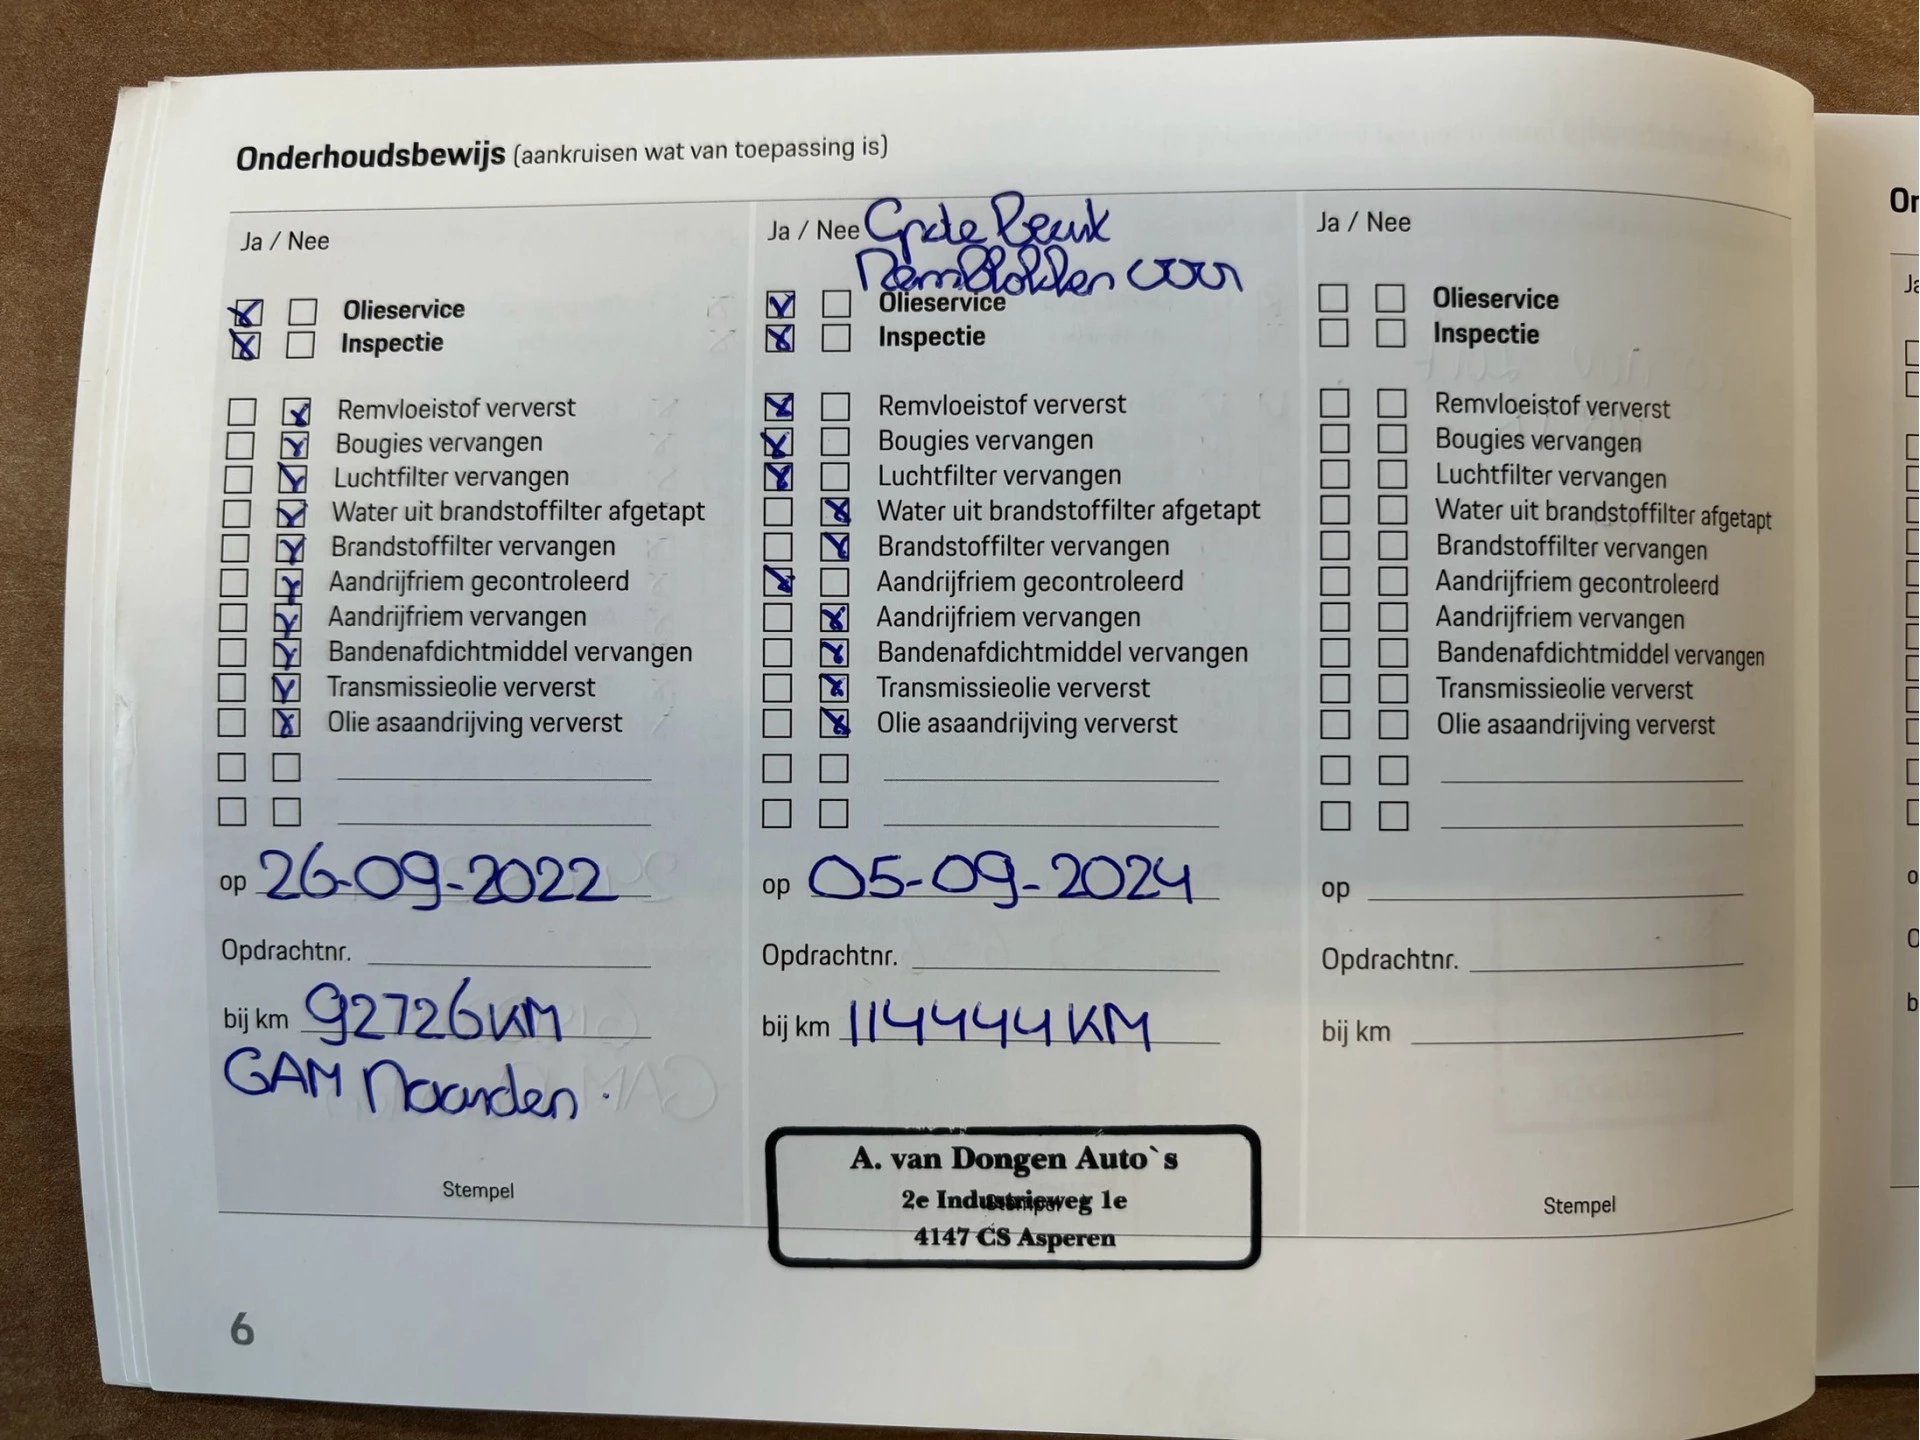 Onderhoudsbewijs (aankruisen wat van toepassing is)
Ja / Nee
Olieservice
Inspectie
Remvloeistof ververst
Bougies vervangen
Luchtfilter vervangen
Water uit brandstoffilter afgetapt
Brandstoffilter vervangen
Aandrijfriem gecontroleerd
Aandrijfriem vervangen
Bandenafdichtmiddel vervangen
Transmissieolie ververst
Olie asaandrijving ververst
op 26-09-2022
Opdrachtnr.
bij km 92726 KM
GAM Naarden.
Stempel
Ja / Nee Grote Beurt
Remblokken voor
Olieservice
Inspectie
Remvloeistof ververst
Bougies vervangen
Luchtfilter vervangen
Water uit brandstoffilter afgetapt
Brandstoffilter vervangen
Aandrijfriem gecontroleerd
Aandrijfriem vervangen
Bandenafdichtmiddel vervangen
Transmissieolie ververst
Olie asaandrijving ververst
op 05-09-2024
Opdrachtnr.
bij km 114444 KM
A. van Dongen Auto`s
2e Industrieweg 1e
4147 CS Asperen
Stempel
Ja / Nee
Olieservice
Inspectie
Remvloeistof ververst
Bougies vervangen
Luchtfilter vervangen
Water uit brandstoffilter afgetapt
Brandstoffilter vervangen
Aandrijfriem gecontroleerd
Aandrijfriem vervangen
Bandenafdichtmiddel vervangen
Transmissieolie ververst
Olie asaandrijving ververst
op
Opdrachtnr.
bij km
Stempel
6